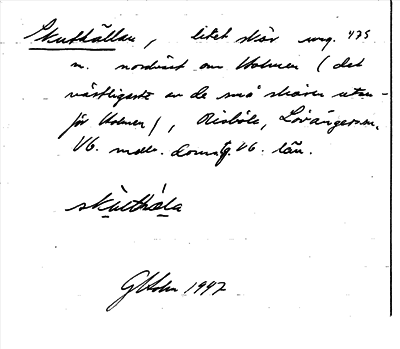 Skuthällan, litet skär ung. 475
m. nordväst om Holmen (det
västligaste av de små skären utan-
för Holmen), Risböle, Lövångers sn.
Vb. mell. doms. Vb. län.
skùthæla
GHolm 1947